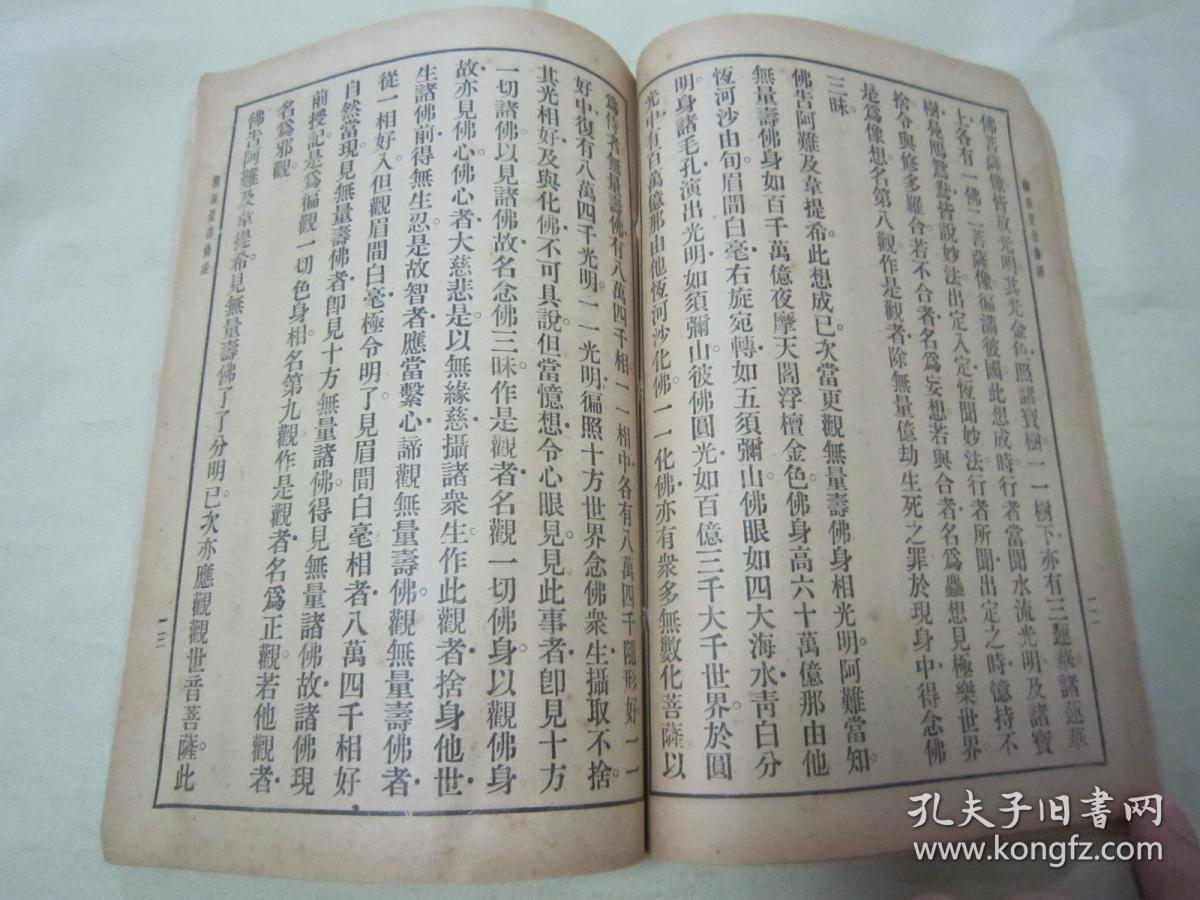 佛菩薩像皆放光明其光金色照諸寶樹一一樹下亦有三蓮華諸蓮華
上各有一佛二菩薩像徧滿彼國此想成時行者當聞水流光明及諸寶
樹鳧鴈鴛鴦皆說妙法出定入定恆聞妙法行者所聞出定之時憶持不
捨令與修多羅合若不合者名爲妄想若與合者名爲麤想見極樂世界
是爲像想名第八觀作是觀者除無量億劫生死之罪於現身中得念佛
三昧。
佛告阿難及韋提希此想成已次當更觀無量壽佛身相光明。阿難當知。
無量壽佛身如百千萬億夜摩天閻浮檀金色。佛身高六十萬億那由他
恆河沙由旬。眉間白毫右旋宛轉如五須彌山。佛眼如四大海水靑白分
明。身諸毛孔演出光明如須彌山。彼佛圓光如百億三千大千世界。於圓
光中有百萬億那由他恆河沙化佛。一一化佛亦有衆多無數化菩薩以
爲侍者無量壽佛有八萬四千相一一相中各有八萬四千隨形好一一
好中復有八萬四千光明一一光明徧照十方世界念佛衆生攝取不捨。
其光相好及與化佛不可具說但當憶想令心眼見見此事者卽見十方
一切諸佛以見諸佛故名念佛三昧作是觀者名觀一切佛身以觀佛身
故亦見佛心佛心者大慈悲是以無緣慈攝諸衆生作此觀者捨身他世
生諸佛前得無生忍是故智者應當繫心諦觀無量壽佛觀無量壽佛者
從一相好入但觀眉間白毫極令明了見眉間白毫相者八萬四千相好
自然當現見無量壽佛者卽見十方無量諸佛得見無量諸佛故諸佛現
前授記是爲徧觀一切色身相名第九觀作是觀者名爲正觀若他觀者
名爲邪觀
佛告阿難及韋提希見無量壽佛了了分明已次亦應觀觀世音菩薩此
一三
孔夫子旧书网
www.kongfz.com